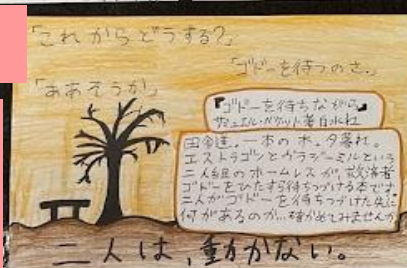 「これからどうする?」
「ゴドーを待つのさ。」
「ああそうか」
『ゴドーを待ちながら』
サミュエル・ベケット著 白水社
田舎道。一本の木。夕暮れ。
エストラゴンとヴラジーミルという
二人組のホームレスが、救済者
ゴドーをひたすら待ちつづける本です。
二人がゴドーを待ちつづけた先に
何があるのか…確かめてみませんか
二人は、動かない。